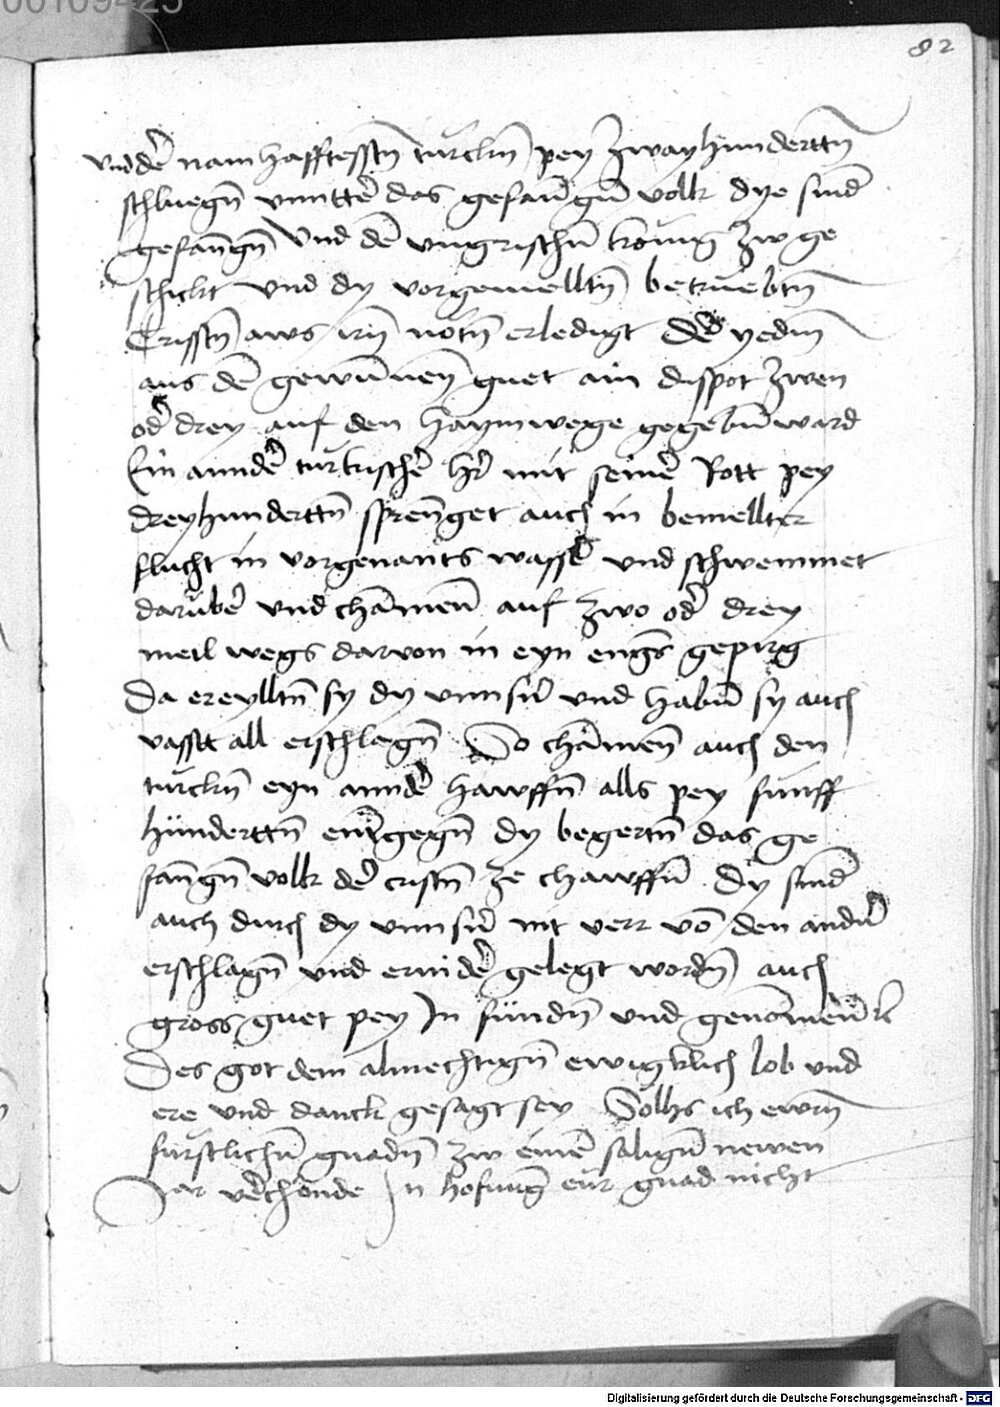 00109425
82
Vnd der namhafftesstn turckn pey Zwayhunderttn
schluegn vnntter das gefangn volk dye sind
gefangn Vnd dem vngrischn konig Zw ge
schickt Vnd dy vorgemelltn betruebtn
Cristn aws irn notn erledigt Der yedm
aus dem gewunnen guet ain dispot Zwen
oder drey auf den haymwege gegebn ward
Ein annder turkischer her mit seiner Rott pey
dreyhundertn sprennget auch in bemellter
flucht in vorgenants wasser vnd schwemmet
daruber vnd chamen auf Zwo oder drey
meil wegs darvon in eyn engs gepirg
Da ereylltn sy dy vnnsrn vnd habn sy auch
vasst all erschlagn So chamen auch den
turckn eyn annder hawffn alls pey funff
hundertn enntgegn dy begertn das ge
fangn volk der cristn Ze chawffn Dy sind
auch durch dy vnnsrn nit verr von den andrn
erschlagn vnd ernider gelegt wordn auch
gross guet pey In fundn vnd genomen
Des got dem almechtign ewigklich lob vnd
ere vnd danck gesagt sey Solhs ich ewrn
furstlichn gnadn Zw einem salign newen
Jar verchonde In hofnung eur gnad nicht
Digitalisierung gefördert durch die Deutsche Forschungsgemeinschaft - DFG